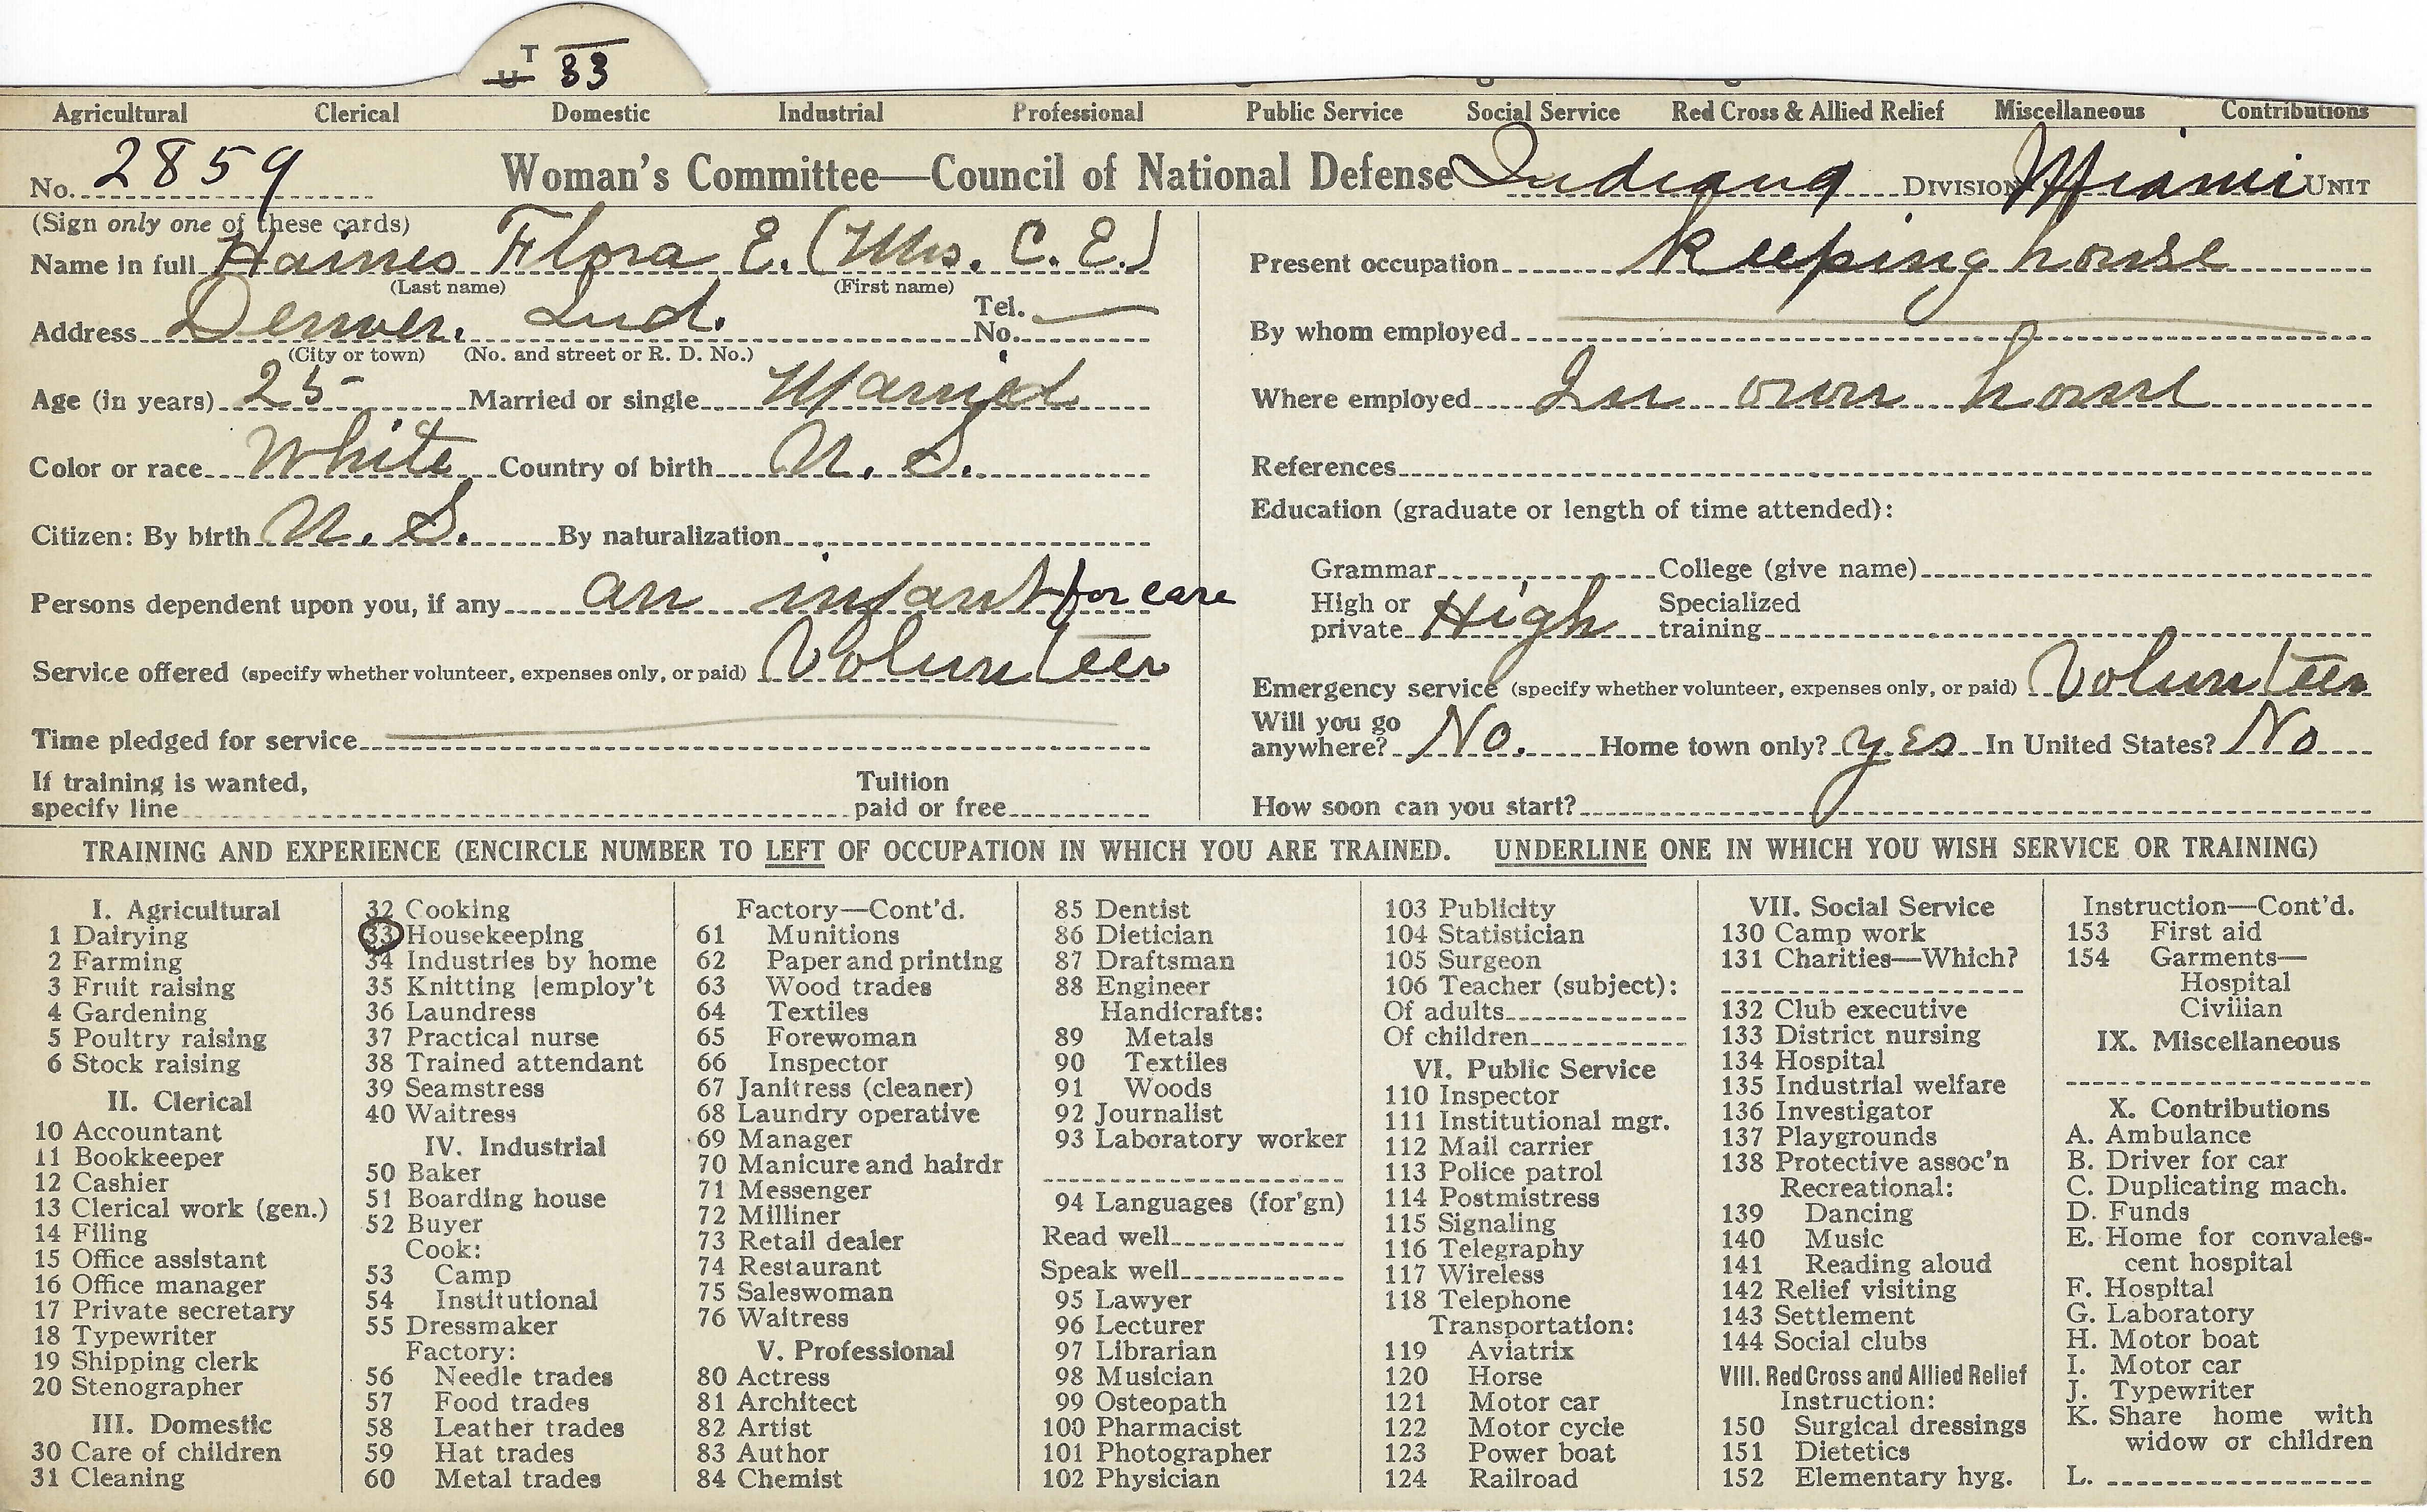 T
U 33
Agricultural Clerical Domestic Industrial Professional Public Service Social Service Red Cross & Allied Relief Miscellaneous Contributions
No. 2859 Woman's Committee—Council of National Defense Indiana Division Miami Unit
(Sign only one of these cards)
Name in full Haines Flora E. (Mrs. C. E.)
(Last name) (First name)
Address Denver. Ind. Tel. No.
(City or town) (No. and street or R. D. No.)
Age (in years) 25 Married or single Married
Color or race White Country of birth U. S.
Citizen: By birth U. S. By naturalization
Persons dependent upon you, if any an infant for care
Service offered (specify whether volunteer, expenses only, or paid) Volunteer
Time pledged for service
If training is wanted,
specify line Tuition paid or free
Present occupation keeping house
By whom employed
Where employed In own home
References
Education (graduate or length of time attended):
Grammar College (give name)
High or private High Specialized training
Emergency service (specify whether volunteer, expenses only, or paid) Volunteer
Will you go anywhere? No. Home town only? yes In United States? No
How soon can you start?
TRAINING AND EXPERIENCE (ENCIRCLE NUMBER TO LEFT OF OCCUPATION IN WHICH YOU ARE TRAINED. UNDERLINE ONE IN WHICH YOU WISH SERVICE OR TRAINING)
I. Agricultural
1 Dairying
2 Farming
3 Fruit raising
4 Gardening
5 Poultry raising
6 Stock raising
II. Clerical
10 Accountant
11 Bookkeeper
12 Cashier
13 Clerical work (gen.)
14 Filing
15 Office assistant
16 Office manager
17 Private secretary
18 Typewriter
19 Shipping clerk
20 Stenographer
III. Domestic
30 Care of children
31 Cleaning
32 Cooking
33 Housekeeping
34 Industries by home
35 Knitting [employ't
36 Laundress
37 Practical nurse
38 Trained attendant
39 Seamstress
40 Waitress
IV. Industrial
50 Baker
51 Boarding house
52 Buyer
Cook:
53 Camp
54 Institutional
55 Dressmaker
Factory:
56 Needle trades
57 Food trades
58 Leather trades
59 Hat trades
60 Metal trades
Factory—Cont'd.
61 Munitions
62 Paper and printing
63 Wood trades
64 Textiles
65 Forewoman
66 Inspector
67 Janitress (cleaner)
68 Laundry operative
69 Manager
70 Manicure and hairdr
71 Messenger
72 Milliner
73 Retail dealer
74 Restaurant
75 Saleswoman
76 Waitress
V. Professional
80 Actress
81 Architect
82 Artist
83 Author
84 Chemist
85 Dentist
86 Dietician
87 Draftsman
88 Engineer
Handicrafts:
89 Metals
90 Textiles
91 Woods
92 Journalist
93 Laboratory worker
94 Languages (for'gn)
Read well
Speak well
95 Lawyer
96 Lecturer
97 Librarian
98 Musician
99 Osteopath
100 Pharmacist
101 Photographer
102 Physician
103 Publicity
104 Statistician
105 Surgeon
106 Teacher (subject):
Of adults
Of children
VI. Public Service
110 Inspector
111 Institutional mgr.
112 Mail carrier
113 Police patrol
114 Postmistress
115 Signaling
116 Telegraphy
117 Wireless
118 Telephone
Transportation:
119 Aviatrix
120 Horse
121 Motor car
122 Motor cycle
123 Power boat
124 Railroad
VII. Social Service
130 Camp work
131 Charities—Which?
132 Club executive
133 District nursing
134 Hospital
135 Industrial welfare
136 Investigator
137 Playgrounds
138 Protective assoc'n
Recreational:
139 Dancing
140 Music
141 Reading aloud
142 Relief visiting
143 Settlement
144 Social clubs
VIII. Red Cross and Allied Relief
Instruction:
150 Surgical dressings
151 Dietetics
152 Elementary hyg.
Instruction—Cont'd.
153 First aid
154 Garments—
Hospital
Civilian
IX. Miscellaneous
X. Contributions
A. Ambulance
B. Driver for car
C. Duplicating mach.
D. Funds
E. Home for convales-
cent hospital
F. Hospital
G. Laboratory
H. Motor boat
I. Motor car
J. Typewriter
K. Share home with
widow or children
L.